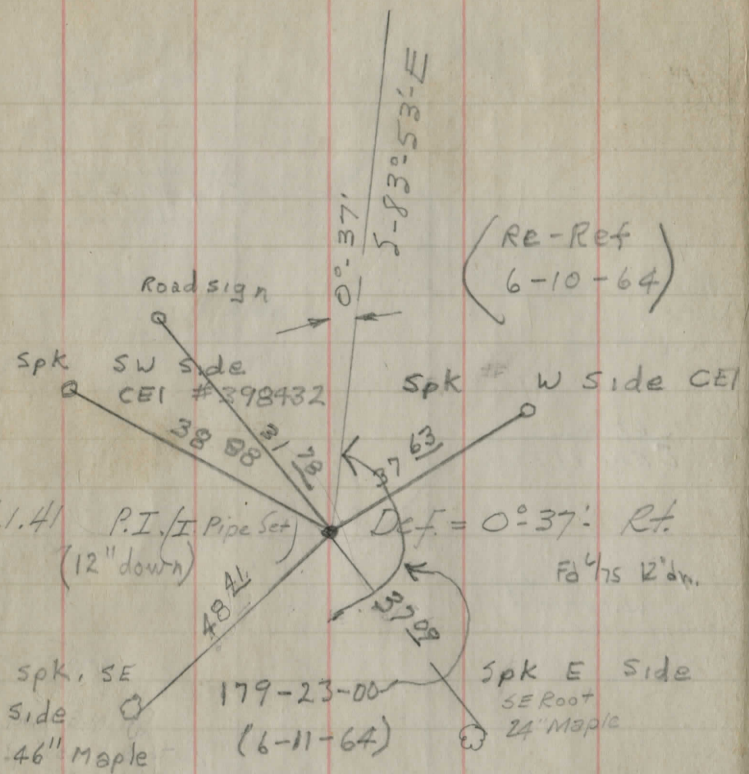 0°-37'
S-83°-53'-E
(Re-Ref
6-10-64)
Road sign
Spk SW Side
CEI #398432
Spk W Side CEI
38 88
31 78
37 63
1.41 P.I. (I Pipe Set)
(12" down)
Def. = 0°-37' Rt.
Fd 4/75 12" dn.
48 41
37 09
Spk, SE
Side
46" Maple
179-23-00
(6-11-64)
Spk E Side
SE Root
24" Maple